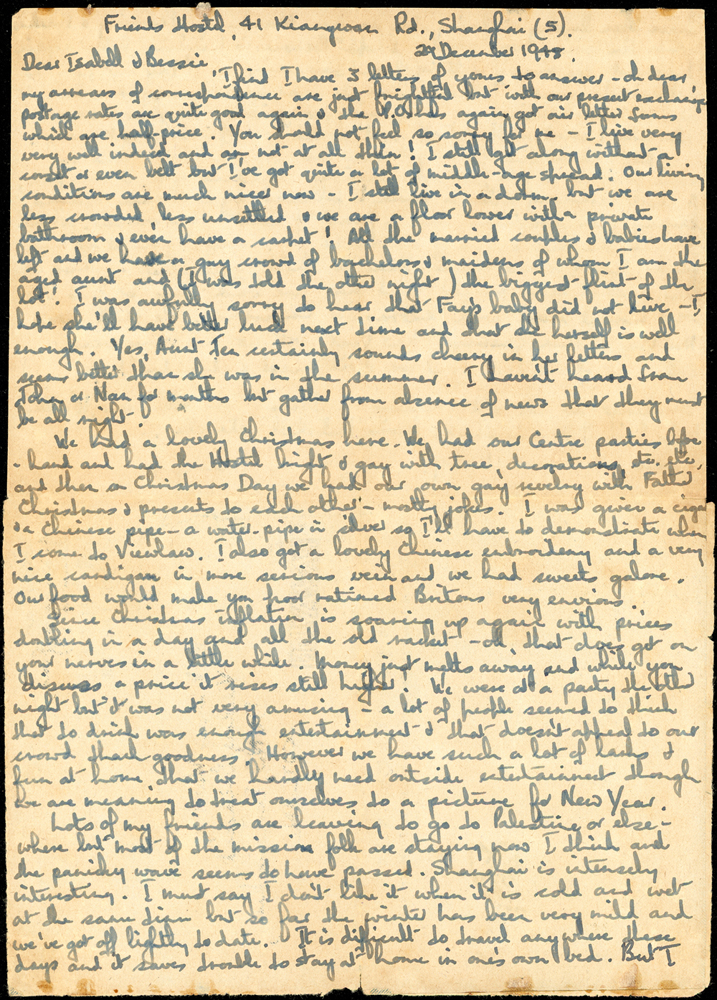 Friends Hostel, 41 Kiangwan Rd., Shanghai (5).
29 December 1948.
Dear Isabell & Bessie,
I find I have 3 letters of yours to answer - oh dear,
my arrears of correspondence are just frightful but with our present exchange
postage rates are quite good again & the P.O. has again got air letter forms
which are half-price. You should not feel so sorry for me - I live very
very well indeed and am not at all thin! I still get along without a
corset or even belt but I've got quite a lot of middle-age spread. Our living
conditions are much nicer now - I still live in a dorm. but we are
less crowded, less unsettled & we are a floor lower with a private
bathroom & even have a carpet! All the married couples & babies have
left and we have a gay crowd of bachelors & maidens of whom I am the
aged aunt and (I was told the other night) the biggest flirt of the
lot! I was awfully sorry to hear that Fay's baby did not live - I
hope she'll have better luck next time and that she herself is well
enough. Yes, Aunt Ten certainly sounds cheery in her letters and
seems better than she was in the summer. I haven't heard from
John or Nan for months but gather from absence of news that they must
be all right!
We had a lovely Christmas here. We had our Centre parties before
-hand and had the Hostel bright & gay with tree, decorations, etc. etc.,
and then on Christmas Day we had our own gay revelry with Father
Christmas & presents to each other - mostly jokes. I was given a cigar
& a Chinese pipe - a water-pipe in silver so I'll have to demonstrate when
I come to Viewlaw. I also got a lovely Chinese embroidery and a very
nice cardigan in more serious vein and we had sweets galore.
Our food would make you poor rationed Britons very envious.
Since Christmas inflation is soaring up again with prices
doubling in a day and all the old racket - oh, that does get on
your nerves in a little while. Money just melts away and while you
discuss a price it rises still higher! We were at a party the other
night but it was not very amusing - a lot of people seemed to think
that to drink was enough entertainment & that doesn't appeal to our
crowd thank goodness. However we have such a lot of larks &
fun at home that we hardly need outside entertainment though
we are meaning to treat ourselves to a picture for New Year.
Lots of my friends are leaving to go to Palestine or else-
where but most of the mission folk are staying now I think and
the panicky wave seems to have passed. Shanghai is intensely
interesting. I must say I don't like it when it is cold and wet
at the same time but so far the winter has been very mild and
we've got off lightly to date. It is difficult to travel anywhere these
days and it saves trouble to stay at home in one's own bed. But I